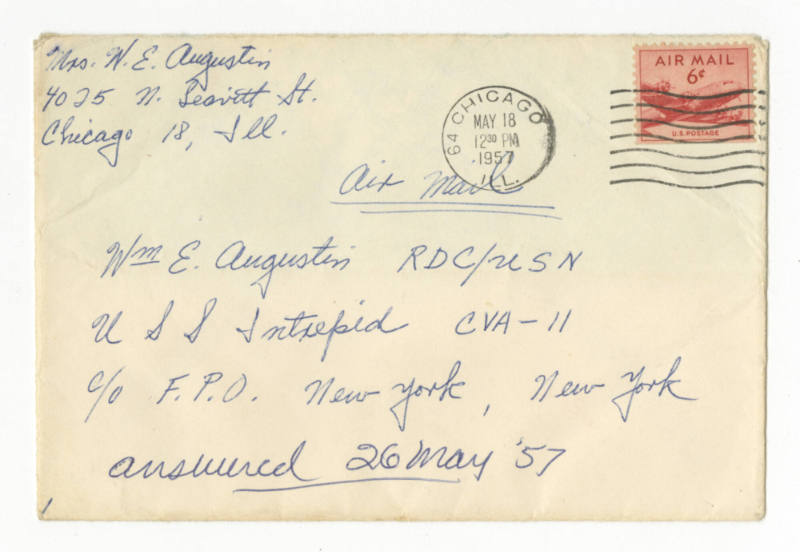 Mrs. W. E. Augustin
4025 N. Leavitt St.
Chicago 18, Ill.
AIR MAIL
6¢
U.S. POSTAGE
64 CHICAGO
MAY 18
12 30 PM
1957
ILL.
Air Mail
Wm E. Augustin RDC/USN
U S S Intrepid CVA-11
c/o F.P.O. New York, New York
answered 26 May '57